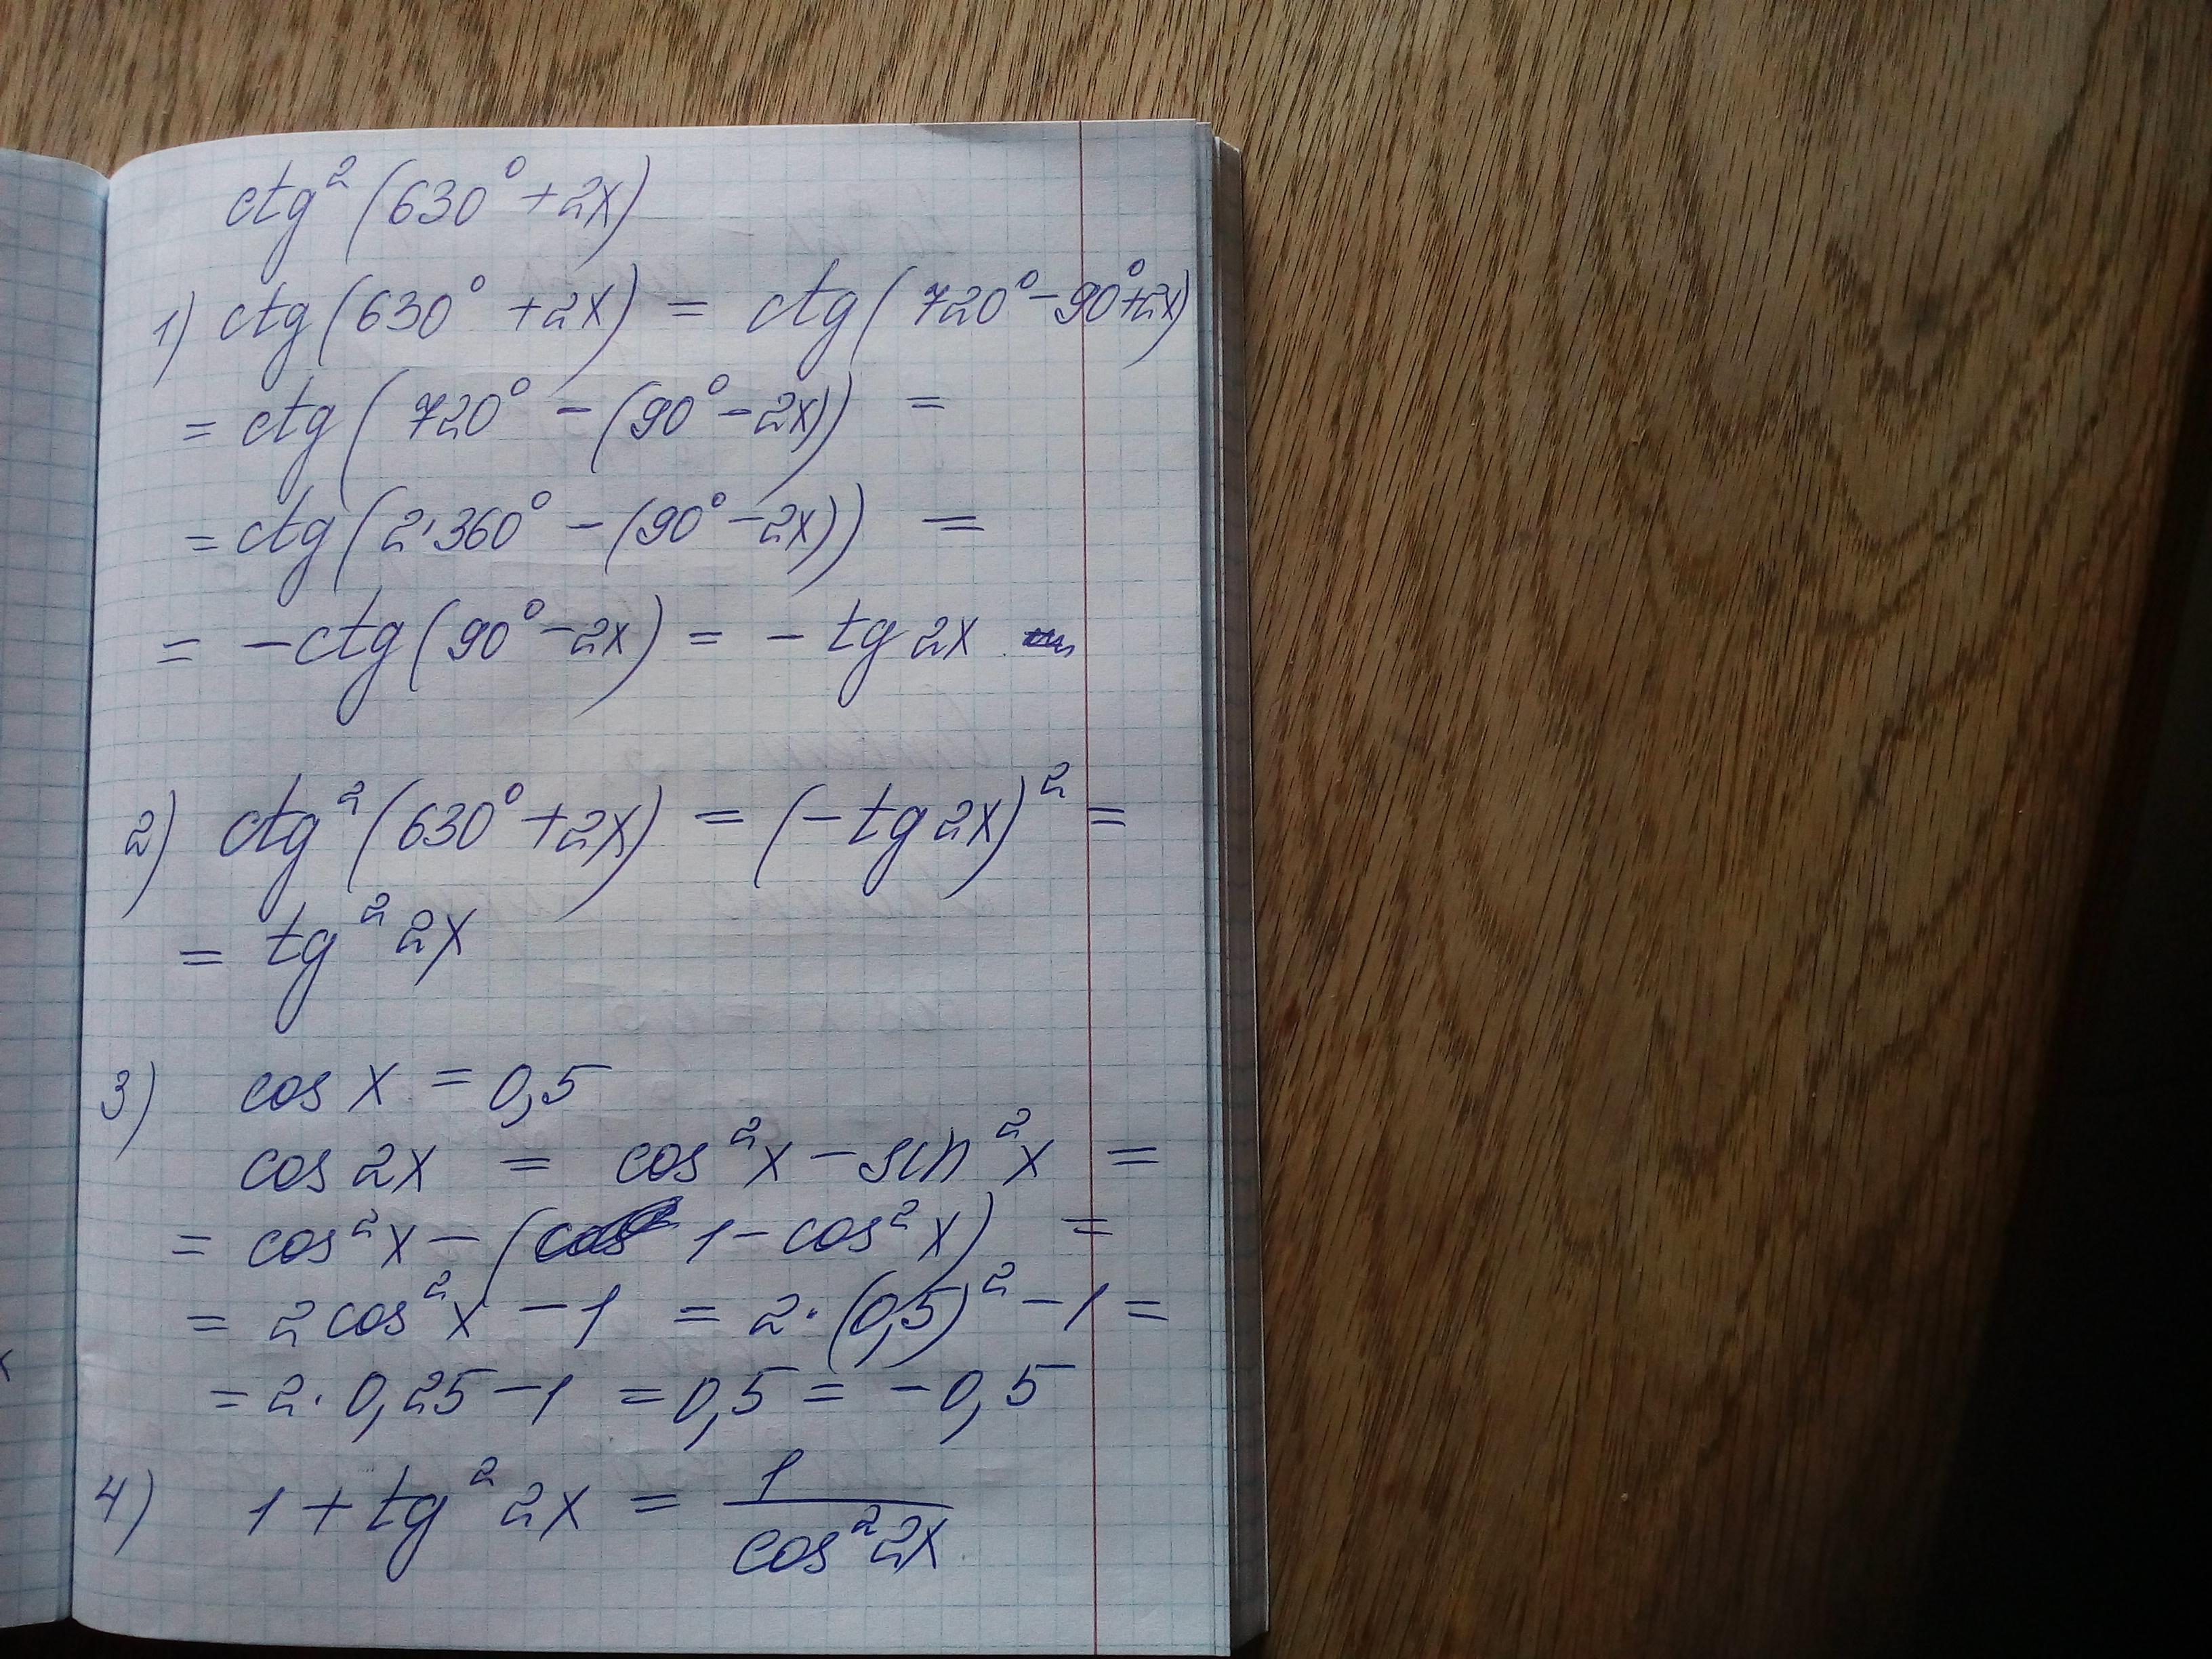 ctg²(630° + 2x)
1) ctg(630° + 2x) = ctg(720° - 90° + 2x)
= ctg(720° - (90° - 2x)) =
= ctg(2·360° - (90° - 2x)) =
= - ctg(90° - 2x) = - tg 2x
2) ctg²(630° + 2x) = (- tg 2x)² =
= tg² 2x
3) cos x = 0,5
cos 2x = cos²x - sin²x =
= cos²x - (1 - cos²x) =
= 2cos²x - 1 = 2·(0,5)² - 1 =
= 2·0,25 - 1 = 0,5 = -0,5
4) 1 + tg² 2x = 1/cos² 2x